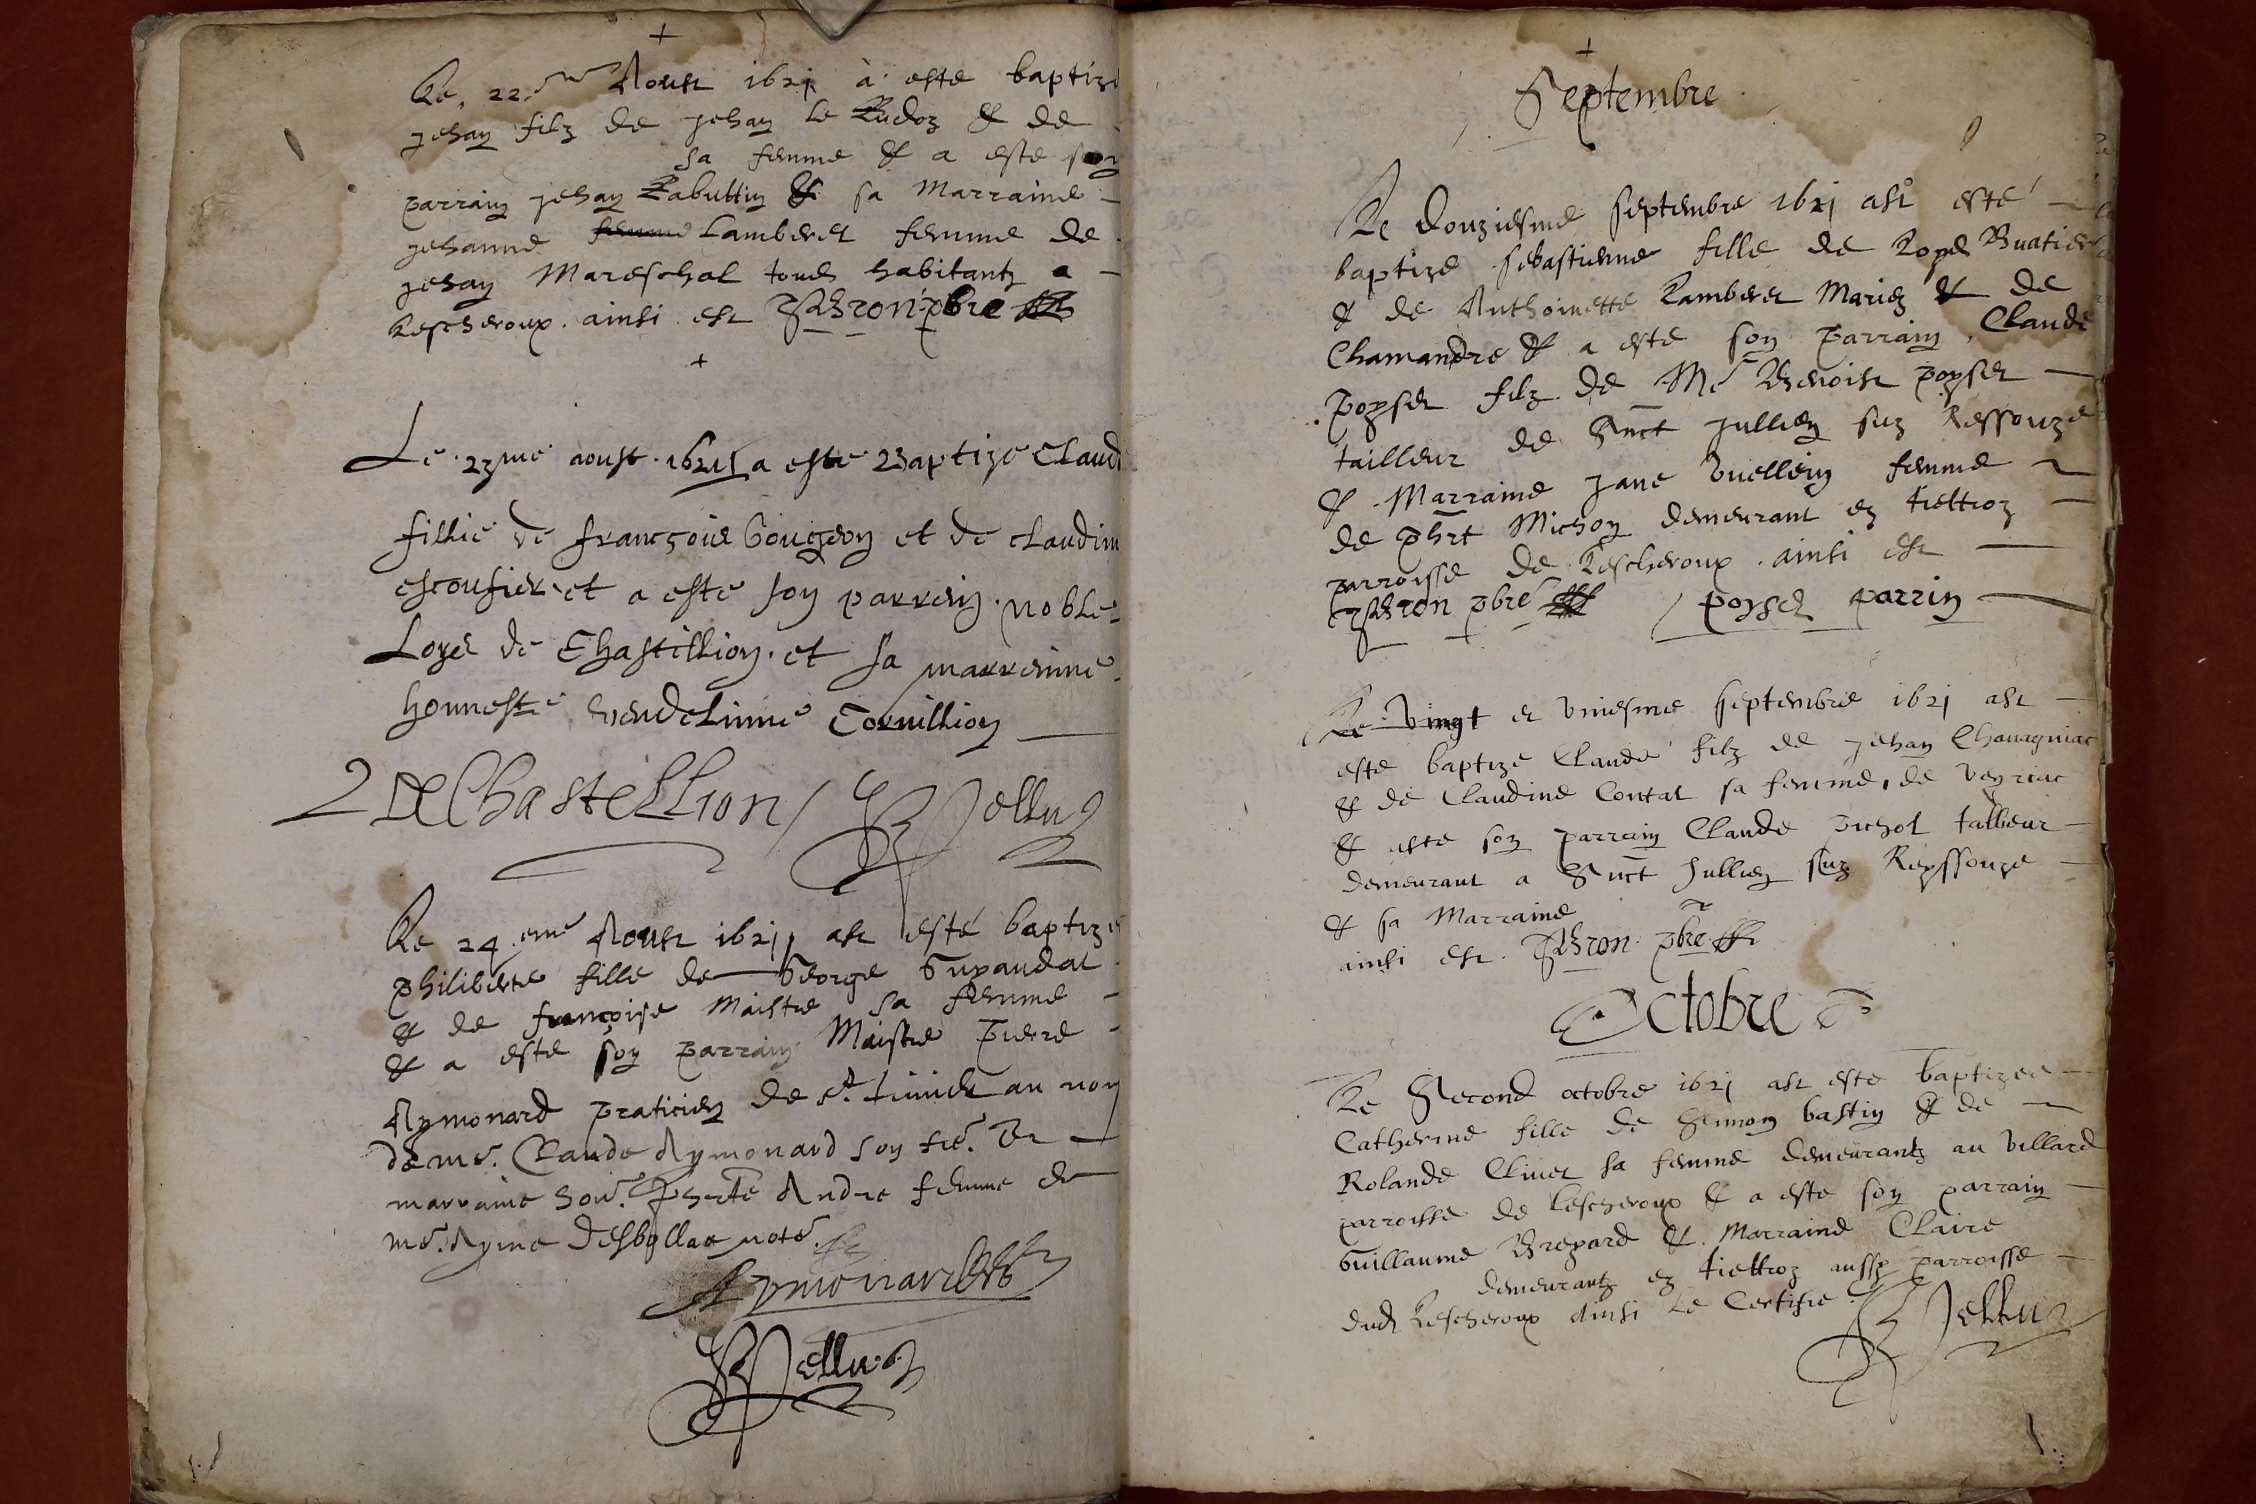 Le 22me Aoust 1621 à este baptizé
Jehan filz de Jehan le Ludoz & de
sa femme & a este son
parrain Jehan Rabuttin & sa Marraine
Jehanne femme Lamberet femme de
Jehan Mareschal tous habitantz a
Lescheroux. ainsi est pbre
Le 23me aoust 1621 a este Baptize Claud
fillie de françois Gougeon et de claudine
escoufier et a este son parrein noble
Loys de Chastillion et sa marreinne
honneste Cornillion
De Chastellion
Le 24.eme Aoust 1621 ast esté baptize
philiberte fille de George Guyaudat
& de françoise Maistre sa femme
& a este son parrain Maistre Pierre
Aymonard praticien de St. au nom
de Me. Claude Aymonard son
marraine Andre femme de
Me. Ayme note
Aymonard
Septembre
Le douziesme septembre 1621 ast esté
baptize sebastienne fille de Loys Buatier
& de Anthoinette Lamberet Mariez & de
Chamandre & a este son parrain Claude
Poyset filz de Me Benoist poyset
tailleur de Sainct Jullien suz Ressouze
& Marraine Jane Vuellein femme
de phbrt Michon demeurant en tiettroz
parroisse de Lescheroux . ainsi est
pbre poyset parrin
Le Vingt et Uniesme septembre 1621 ast
este baptize Claude filz de Jehan Chanagniat
& de Claudine Contat sa femme, de Veyriat
& este son parrain Claude Pichot tailleur
demeurant a Sainct Jullien suz Reyssouze
& sa Marraine
ainsi est pbre
Octobre
Le Second octobre 1621 ast este baptizee
Catherine fille de Simon bastin & de
Rolande Clivet sa femme demeurantz au Villard
parroisse de Lescheroux & a este son parrain
Guillaume Breyard & Marraine Claire
demeurantz en tiettroz aussy parroisse
dud Lescheroux ainsi le Certifie